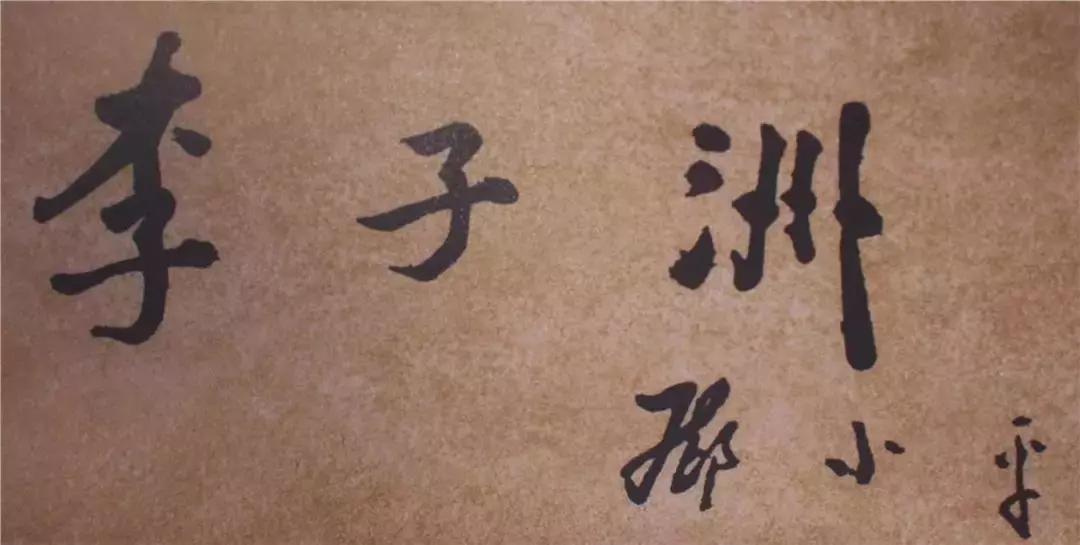 李子洲
邓小平